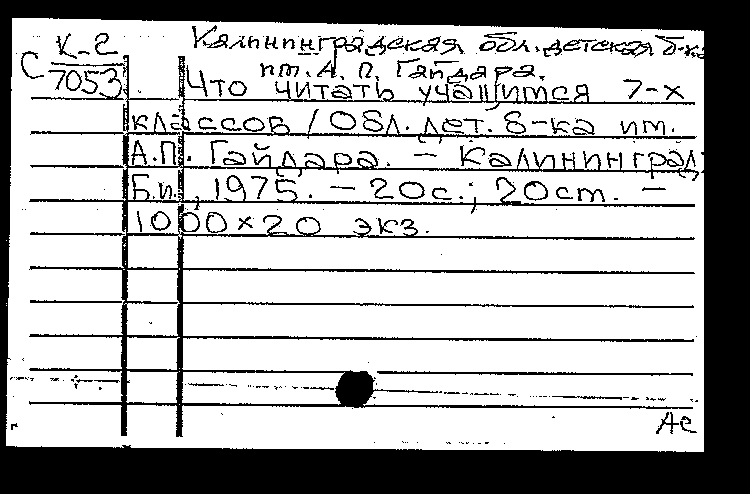 Калининградская обл. детская б-ка
им. А. П. Гайдара.
С К-2
7053
Что читать учащимся 7-х
классов / Обл. дет. б-ка им.
А.П. Гайдара. – Калининград:
Б.и., 1975. – 20с.; 20см. –
1000×20 экз.
АС